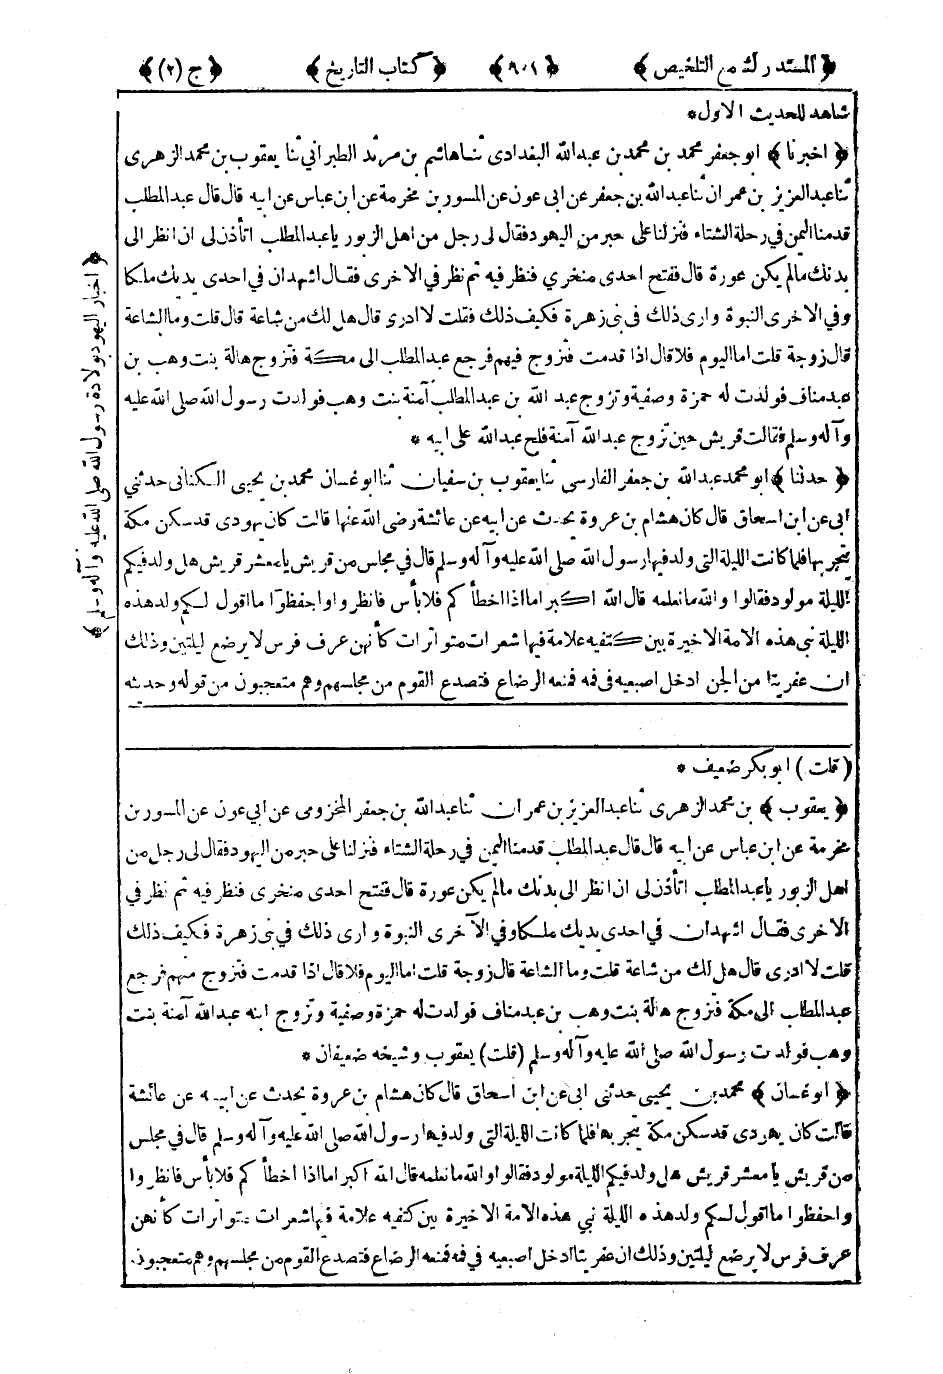 ﴿ المستدرك مع التلخيص ﴾ ﴿ ٦٠١ ﴾ ﴿ كتاب التاريخ ﴾ ﴿ ج (٢) ﴾
شاهد للحديث الاول*
﴿ اخبرنا ﴾ ابو جعفر محمد بن محمد بن عبدالله البغدادى ثنا هاشم بن مرثد الطبراني ثنا يعقوب بن محمد الزهرى
ثنا عبد العزيز بن عمران ثنا عبدالله بن جعفر عن ابى عون عن المسور بن مخرمة عن ابن عباس عن ابيه قال قال عبد المطلب
قدمنا اليمن في رحلة الشتاء فنزلنا على حبر من اليهود فقال لى رجل من اهل الزبور يا عبد المطلب اتأذن لى ان انظر الى
بدنك مالم يكن عورة قال ففتح احدى منخري فنظر فيه ثم نظر في الاخرى فقال اشهد ان في احدى يديك ملكا
وفي الاخرى النبوة وارى ذلك فى بنى زهرة فكيف ذلك فقلت لا ادرى قال هل لك من شاعة قال قلت وما الشاعة
قال زوجة قلت اما اليوم فلا قال اذا قدمت فتزوج فيهم فرجع عبد المطلب الى مكة فتزوج هالة بنت وهب بن
عبد مناف فولدت له حمزة وصفية وتزوج عبد الله بن عبد المطلب آمنة بنت وهب فولدت رسول الله صلى الله عليه
وآله وسلم فقالت قريش حين تزوج عبدالله آمنة فلح عبدالله على ابيه *
﴿ حدثنا ﴾ ابو محمد عبدالله بن جعفر الفارسى ثنا يعقوب بن سفيان ثنا ابو غسان محمد بن يحيى الكنانى حدثني
ابى عن ابن اسحاق قال كان هشام بن عروة يحدث عن ابيه عن عائشة رضى الله عنها قالت كان يهودى قد سكن مكة
يتجر بها فلما كانت الليلة التى ولد فيها رسول الله صلى الله عليه وآله وسلم قال في مجلس من قريش يا معشر قريش هل ولد فيكم
الليلة مولود فقالوا والله ما نعلمه قال الله اكبر اما اذا اخطأكم فلا بأس فانظروا واحفظوا ما اقول لكم ولد هذه
الليلة نبي هذه الامة الاخيرة بين كتفيه علامة فيها شعرات متواترات كأنهن عرف فرس لا يرضع ليلتين وذلك
ان عفريتا من الجن ادخل اصبعيه فى فمه فمنعه الرضاع فتصدع القوم من مجلسهم وهم متعجبون من قوله وحديثه
﴿ اخبار اليهود بولادة رسول الله صلى الله عليه وآله وسلم ﴾
(قلت) ابو بكر ضعيف *
﴿ يعقوب ﴾ بن محمد الزهرى ثنا عبد العزيز بن عمران ثنا عبدالله بن جعفر المخزومى عن ابي عون عن المسور بن
مخرمة عن ابن عباس عن ابيه قال قال عبد المطلب قدمنا اليمن في رحلة الشتاء فنزلنا على حبر من اليهود فقال لى رجل من
اهل الزبور يا عبد المطلب اتأذن لى ان انظر الى بدنك مالم يكن عورة قال ففتح احدى منخرى فنظر فيه ثم نظر في
الاخرى فقال اشهد ان في احدى يديك ملكا وفي الآخرى النبوة وارى ذلك في بنى زهرة فكيف ذلك
قلت لا ادرى قال هل لك من شاعة قلت وما الشاعة قال زوجة قلت اما اليوم فلا قال اذا قدمت فتزوج منهم فرجع
عبد المطلب الى مكة فتزوج هالة بنت وهب بن عبد مناف فولدت له حمزة وصفية وتزوج ابنه عبدالله آمنة بنت
وهب فولدت رسول الله صلى الله عليه وآله وسلم (قلت) يعقوب وشيخه ضعيفان *
﴿ ابو غسان ﴾ محمد بن يحيى حدثنى ابى عن ابن اسحاق قال كان هشام بن عروة يحدث عن ابيه عن عائشة
قالت كان يهودى قد سكن مكة يتجر بها فلما كانت الليلة التى ولد فيها رسول الله صلى الله عليه وآله وسلم قال في مجلس
من قريش يا معشر قريش هل ولد فيكم الليلة مولود فقالوا والله ما نعلمه قال الله اكبر اما اذا اخطأكم فلا بأس فانظروا
واحفظوا ما اقول لكم ولد هذه الليلة نبي هذه الامة الاخيرة بين كتفيه علامة فيها شعرات متواترات كأنهن
عرف فرس لا يرضع ليلتين وذلك ان عفريتا ادخل اصبعيه في فمه فمنعه الرضاع فتصدع القوم من مجلسهم وهم متعجبون.